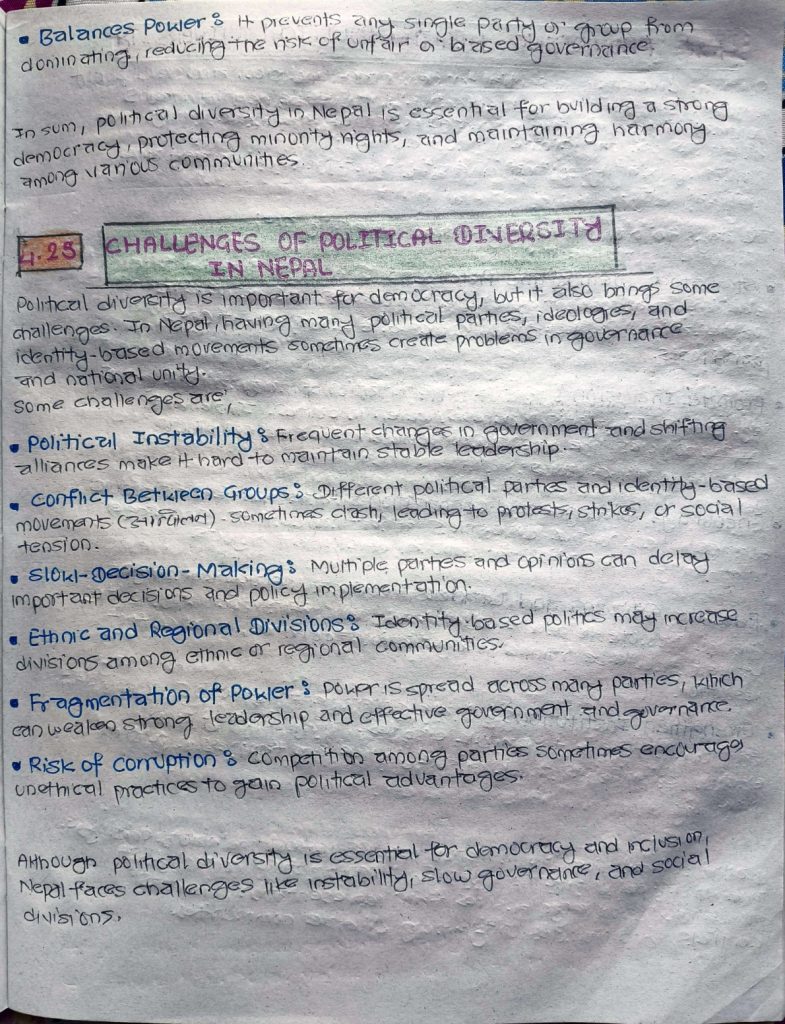 • Balances Power : It prevents any single party or group from
dominating, reducing the risk of unfair or biased governance.
In sum, political diversity in Nepal is essential for building a strong
democracy, protecting minority rights, and maintaining harmony
among various communities.
4.25 CHALLENGES OF POLITICAL DIVERSITY
IN NEPAL
Political diversity is important for democracy, but it also brings some
challenges. In Nepal, having many political parties, ideologies, and
identity-based movements sometimes create problems in governance
and national unity.
Some challenges are,
• Political Instability : Frequent changes in government and shifting
alliances make it hard to maintain stable leadership.
• Conflict Between Groups : Different political parties and identity-based
movements () sometimes clash, leading to protests, strikes, or social
tension.
• Slow-Decision-Making : Multiple parties and opinions can delay
important decisions and policy implementation.
• Ethnic and Regional Divisions : Identity-based politics may increase
divisions among ethnic or regional communities.
• Fragmentation of Power : Power is spread across many parties, which
can weaken strong leadership and effective government and governance.
• Risk of corruption : Competition among parties sometimes encourages
unethical practices to gain political advantages.
Although political diversity is essential for democracy and inclusion,
Nepal faces challenges like instability, slow governance, and social
divisions.